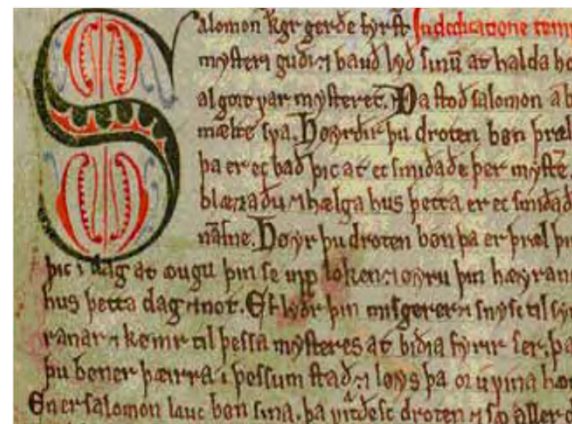 Salomon kgr gerðe fyrst In dedicatione temp
mysteri guði ⁊ bauð lyð sinū at halda ho
algort var mysteret. Þa stoð salomon a b
mælte sva. Høyrðu þu droten bøn þræl
þa er ec bað þic at ec smidaðe þer mystē
blæzaðu ⁊ hælga hus þetta er ec smidað
nāfne. Høyr þu droten bøn þa er þræl þin
þic i dag at augu þin se upp loken ⁊ øyru þin hæyran
hus þetta dag ⁊ not. Ef lyðr þin misgerer ⁊ snyse til syn
ranar ⁊ kemr til þessa mysteres at biðia fyrir ser. þa
þu bøner þæirra i þessum stað ⁊ løys þa or uvina hon
En er salomon lauc bøn sina. þa vitðesc droten ⁊ sa aller d